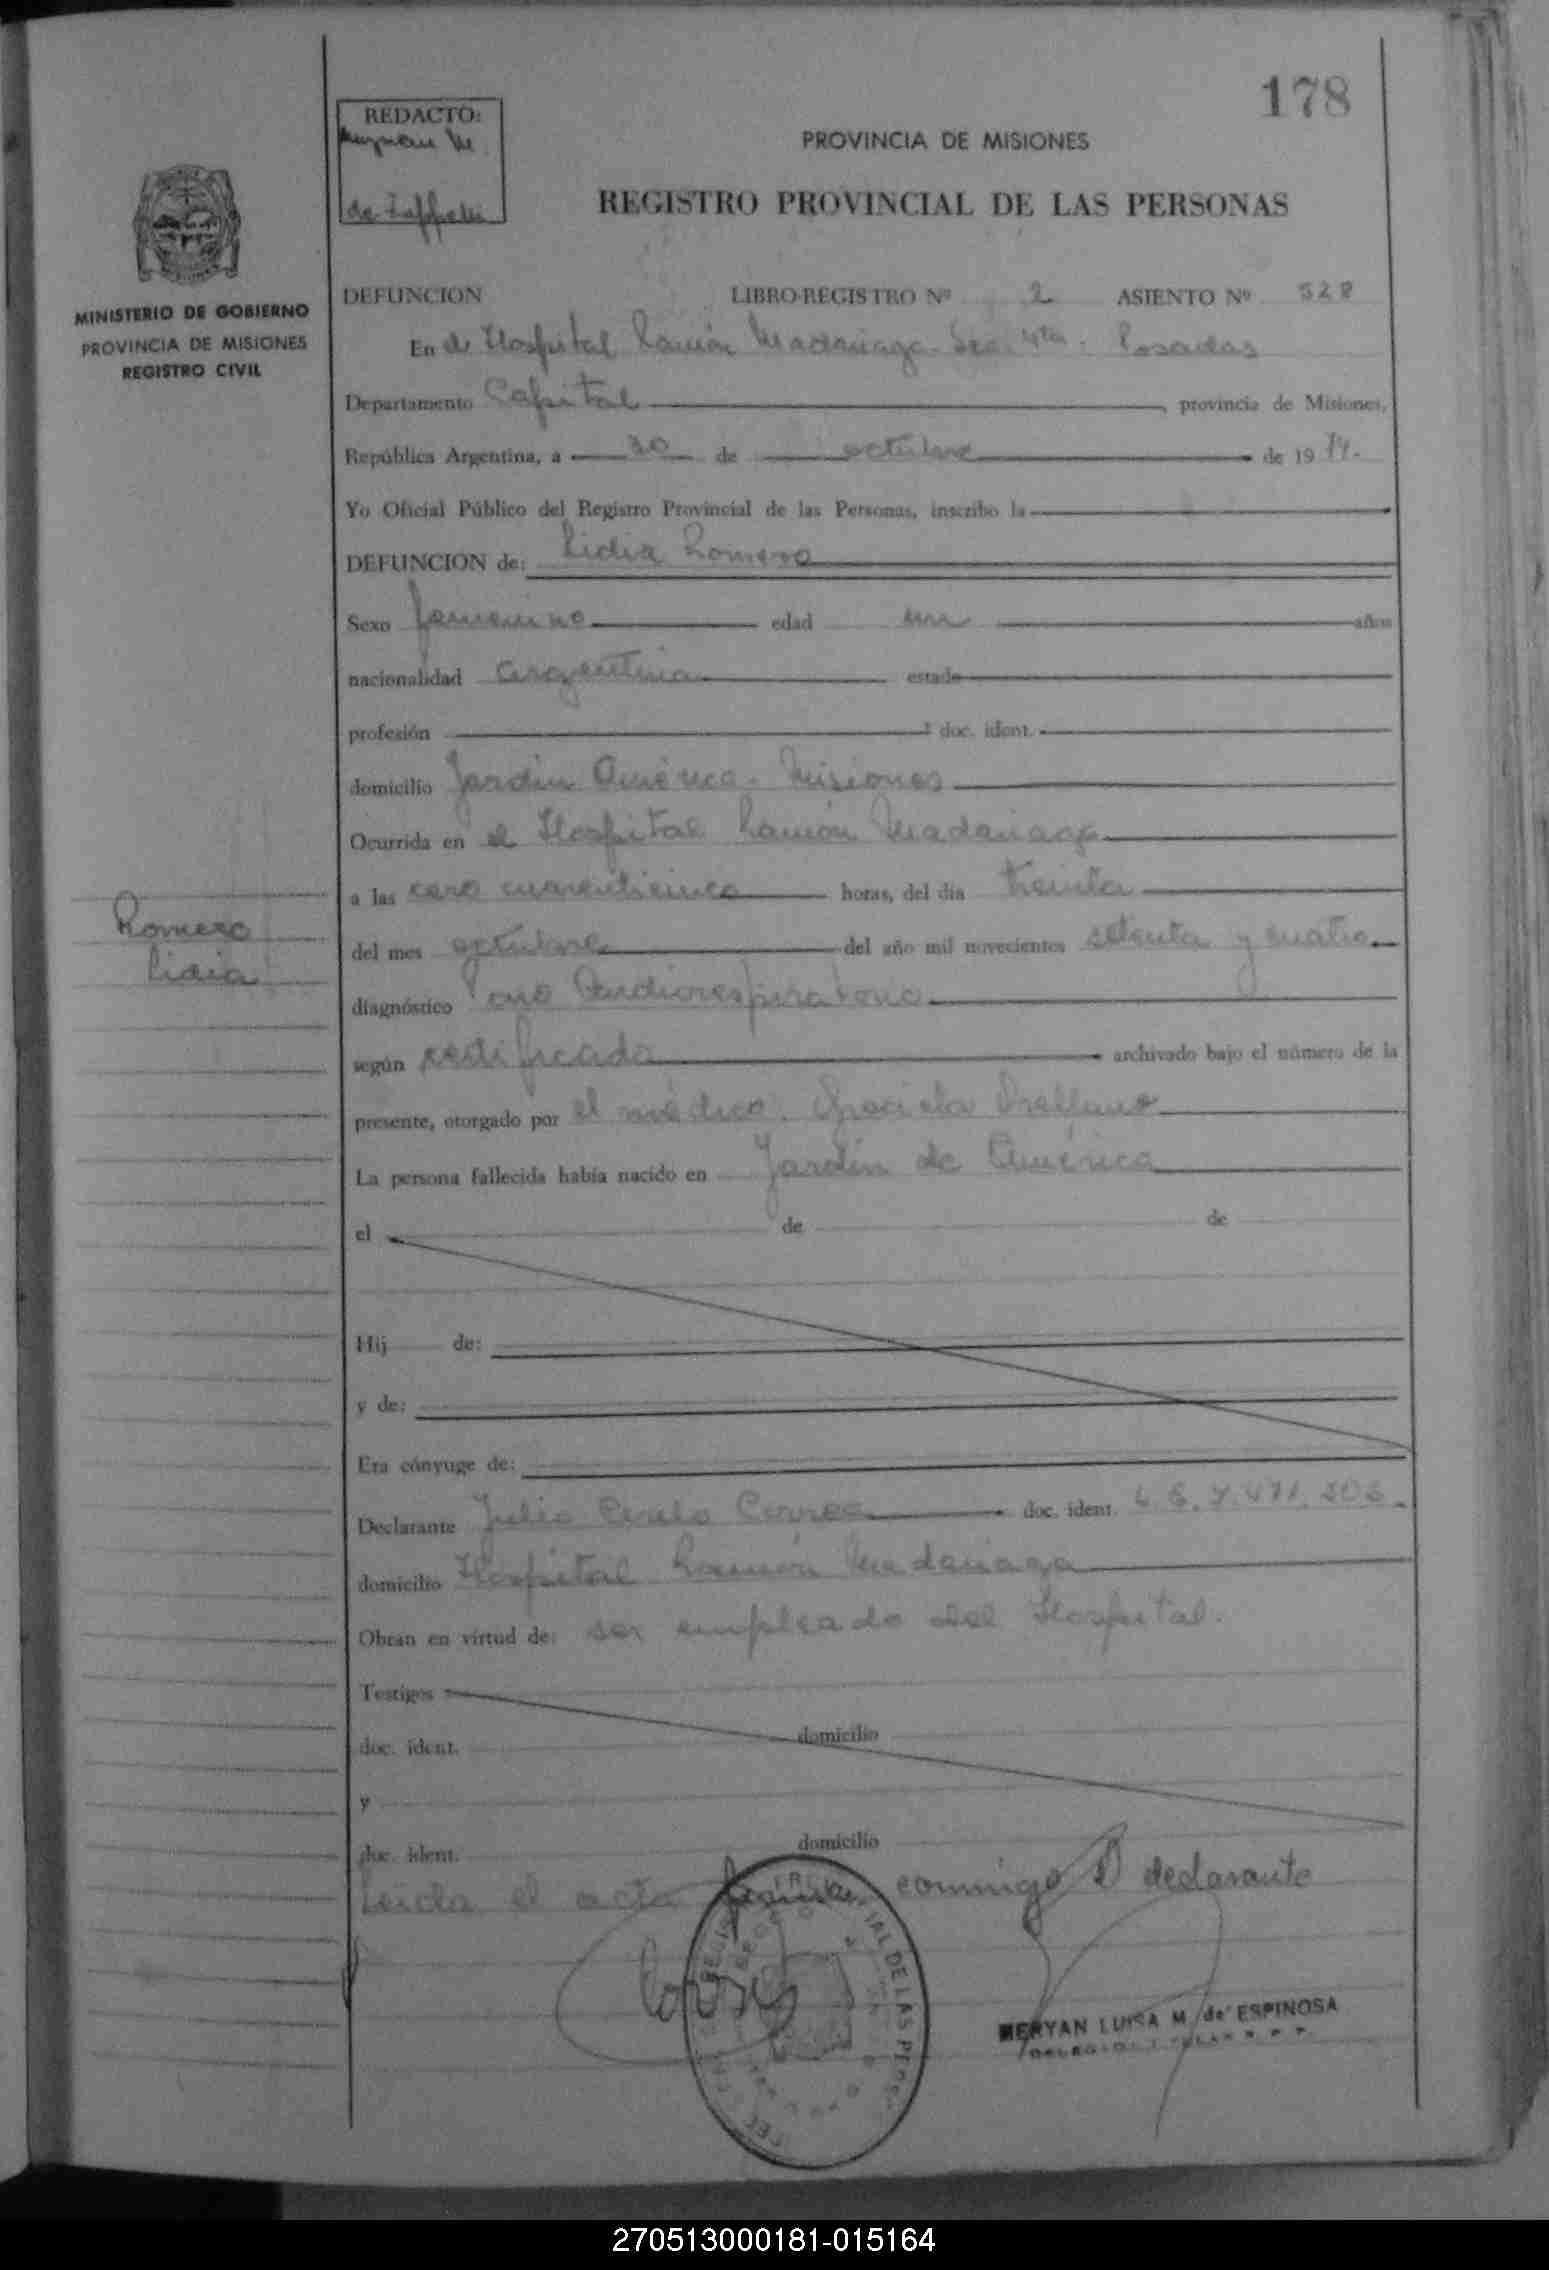 178
REDACTO:
PROVINCIA DE MISIONES
REGISTRO PROVINCIAL DE LAS PERSONAS
MINISTERIO DE GOBIERNO
PROVINCIA DE MISIONES
REGISTRO CIVIL
DEFUNCION LIBRO-REGISTRO Nº 2 ASIENTO Nº 528
En el Hospital Ramón Madariaga. Sec. 4ta. Posadas
Departamento Capital provincia de Misiones,
República Argentina, a 30 de octubre de 1974.
Yo Oficial Público del Registro Provincial de las Personas, inscribo la
DEFUNCION de: Lidia Romero
Sexo femenino edad un años
nacionalidad argentina estado
profesión doc. ident.
domicilio Jardín América - Misiones
Ocurrida en el Hospital Ramón Madariaga
a las cero cuarenticinco horas, del día treinta
Romero
Lidia
del mes octubre del año mil novecientos setenta y cuatro
diagnóstico Paro Cardiorespiratorio
según certificado archivado bajo el número de la
presente, otorgado por el médico. Graciela Orellano
La persona fallecida había nacido en Jardín de América
el de de
Hij de:
y de:
Era cónyuge de:
Declarante Julio Correa doc. ident. 7.471.
domicilio Hospital Ramón Madariaga
Obran en virtud de: ser empleado del Hospital.
Testigos
doc. ident. domicilio
y
doc. ident. domicilio
Leida el acta firma conmigo el declarante
MERYAN LUISA M. de ESPINOSA
270513000181-015164